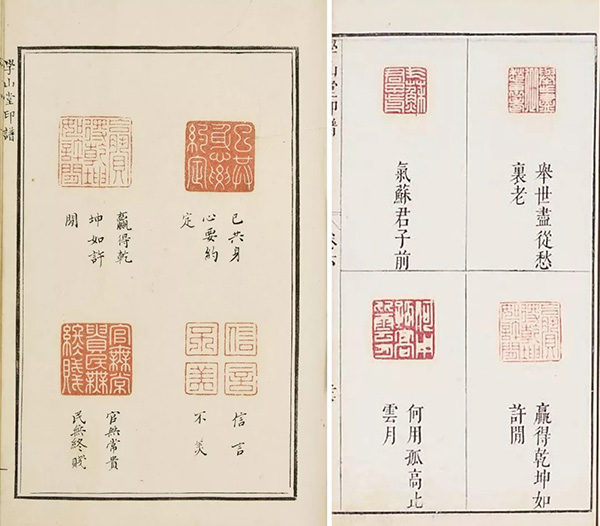 學山堂印譜
已共身
心要約
定
贏得乾
坤如許
閒
信言
不美
官無常貴
民無終賤
學山堂印譜
舉世盡從愁
裏老
氣蘇君子前
贏得乾坤如
許閒
何用孤高比
雲月